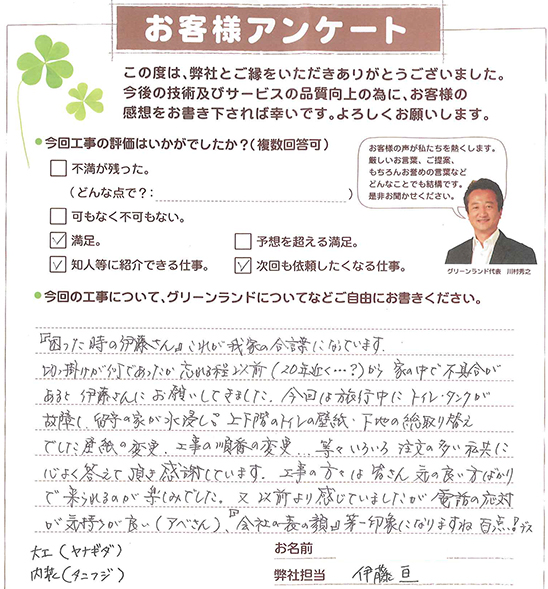 お客様アンケート
この度は、弊社とご縁をいただきありがとうございました。
今後の技術及びサービスの品質向上の為に、お客様の
感想をお書き下されば幸いです。よろしくお願いします。
●今回工事の評価はいかがでしたか?(複数回答可)
不満が残った。
(どんな点で?: )
可もなく不可もない。
満足。
予想を超える満足。
知人等に紹介できる仕事。
次回も依頼したくなる仕事。
お客様の声が私たちを熱くします。
厳しいお言葉、ご提案、
もちろんお誉めの言葉など
どんなことでも結構です。
是非お聞かせください。
グリーンランド代表 川村秀之
●今回の工事について、グリーンランドについてなどご自由にお書きください。
『困った時の伊藤さん』これが我家の合言葉になっています.
切っ掛けが何であったか忘れる程以前(20年近く…?)から 家の中で不具合が
あると伊藤さんにお願いしてきました. 今回は旅行中にトイレ・タンクが
故障し 留守の家が水浸し。上下階のトイレの壁紙・下地の総取り替え
でした 壁紙の変更. 工事の順番の変更... 等々いろいろ 注文の多い私共に
心よく答えて頂き感謝しています. 工事の方々は皆さん 気の良い方ばかり
で来られるのが楽しみでした. 又 以前より感じていましたが 電話の応対
が気持ちが良い(アベさん)、『会社の表の顔』第一印象になりますね 百点!デス
大工(ヤナギダ)
内装(タニフジ)
お名前
弊社担当 伊藤 亘